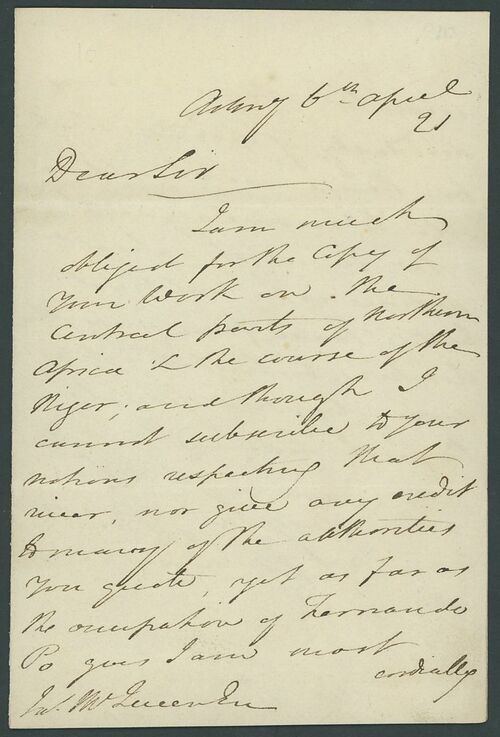 Admy 6th april
21
Dear Sir
I am much
obliged for the Copy of
Your Work on the
Central parts of Northern
Africa & the course of the
Niger; and though I
cannot subscribe to your
notions respecting that
river, nor give any credit
to many of the authorities
You quote, yet as far as
the occupation of Fernando
Po goes I am most
cordially
Jas. McQueen Esq